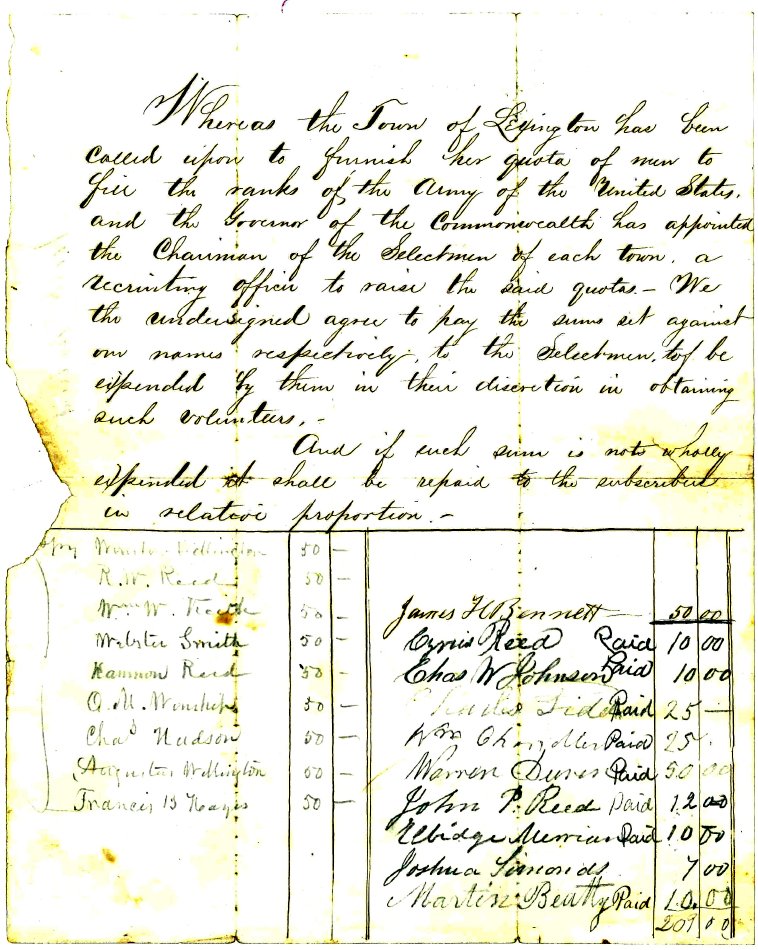 Whereas the Town of Lexington has been
called upon to furnish her quota of men to
fill the ranks of the Army of the United States,
and the Governor of the Commonwealth has appointed
the Chairman of the Selectmen of each town, a
recruiting officer to raise the said quotas. — We
the undersigned agree to pay the sums set against
our names respectively, to the Selectmen, to be
expended by them in their discretion in obtaining
such volunteers. —
And if such sum is not wholly
expended it shall be repaid to the subscribers
in relative proportion. —
Wellington 50 —
R. W. Reed 50 —
Wm W. Keith 50 —
Webster Smith 50 —
Hammon Reed 50 —
O. M. Wonship 50 —
Chas Hudson 50 —
Augustus Wellington 50 —
Francis B Hayes 50 —
James H Bennett 50 00
Cyrus Reed Paid 10 00
Chas W Johnson Paid 10 00
Paid 25 —
Wm Chandler Paid 25
Warren Paid 50 00
John P. Reed Paid 12 00
Elbidge Merriam Paid 10 00
Joshua Simonds 7 00
Martin Beatty Paid 10.00
209 00